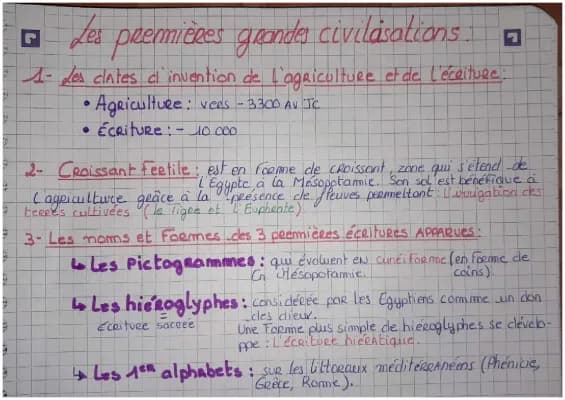 Les premmières grandes civilisations :
1- Les dates d'invention de l'agriculture et de l'écriture :
• Agriculture : vers - 3300 AV JC
• Écriture : - 10 000
2- Croissant Fertile : est en forme de croissant, zone qui s'étend de
l'Égypte à la Mésopotamie. Son sol est bénéfique à
l'agriculture grâce à la présence de fleuves permettant : l'irrigation des
terres cultivées (le tigre et l'Euphrate).
3- Les noms et formes des 3 premmières écritures apparues :
↳ Les Pictogrammes : qui évoluent en cunéiforme (en forme de
En Mésopotamie. coins).
↳ Les hiéroglyphes : considérée par les Égyptiens comme un don
= écriture sacrée des dieux.
Une forme plus simple de hiéroglyphes se dévelo-
ppe : l'écriture hiératique.
↳ Les 1er alphabets : sur les littoraux méditerranéens (Phénicie,
Grèce, Rome).